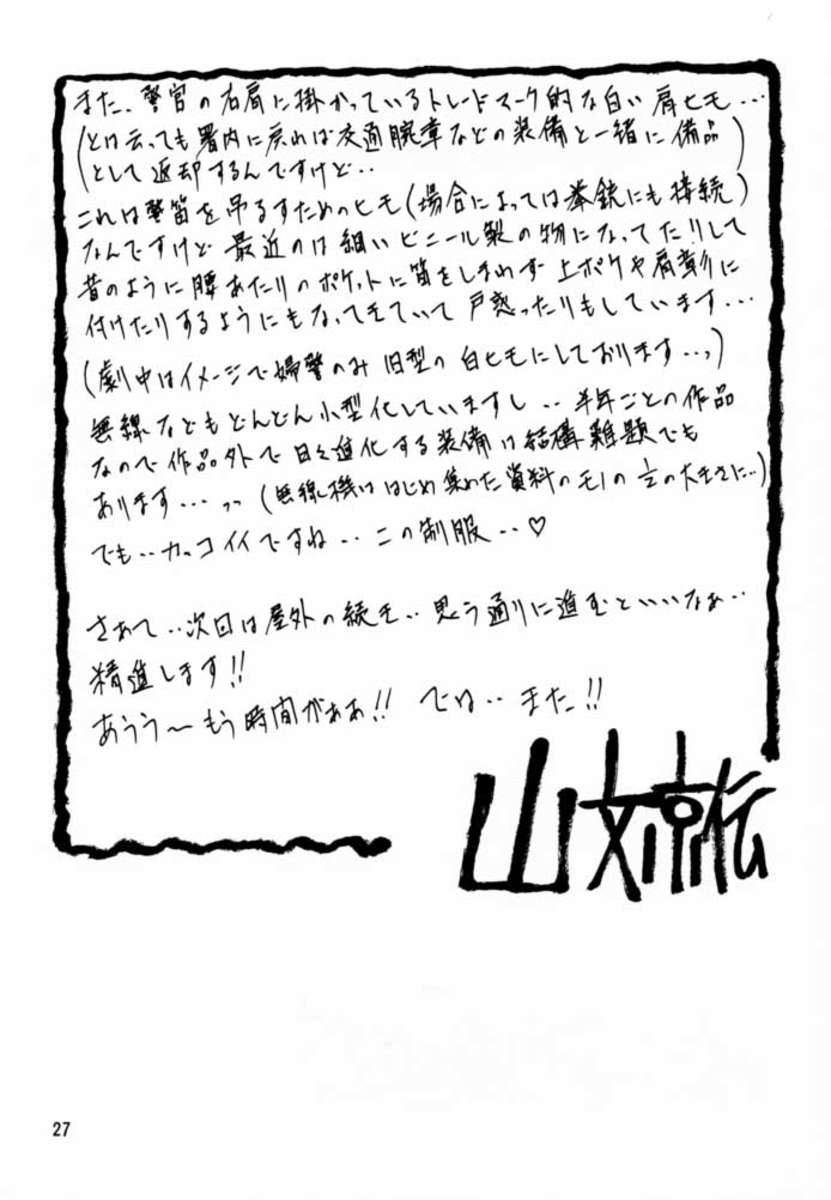 また、警官の右肩に掛かっているトレードマーク的な白い肩ヒモ…
(とは云っても署内に戻れば交通腕章などの装備と一緒に備品
として返却するんですけど‥)
これは警笛を吊るすためのヒモ(場合によっては拳銃にも接続)
なんですけど 最近のは細いビニール製の物になってたりして
昔のように腰あたりのポケットに笛をしまわず 上ポケや肩章に
付けたりするようにもなってきていて 戸惑ったりもしています…
(劇中はイメージで婦警のみ 旧型の白ヒモにしております…っ)
無線などもどんどん小型化していますし‥半年ごとの作品
なので作品外で日々進化する装備は結構難題でも
あります…っっ(無線機は はじめ集めた資料のモノの½の大きさに…)
でも‥カッコイイですね‥この制服‥♡
さあて‥次回は屋外の続き‥思う通りに進むといいなぁ‥
精進します!!
あうう〜もう時間がぁぁ!! では‥また!!
山姥伝
27